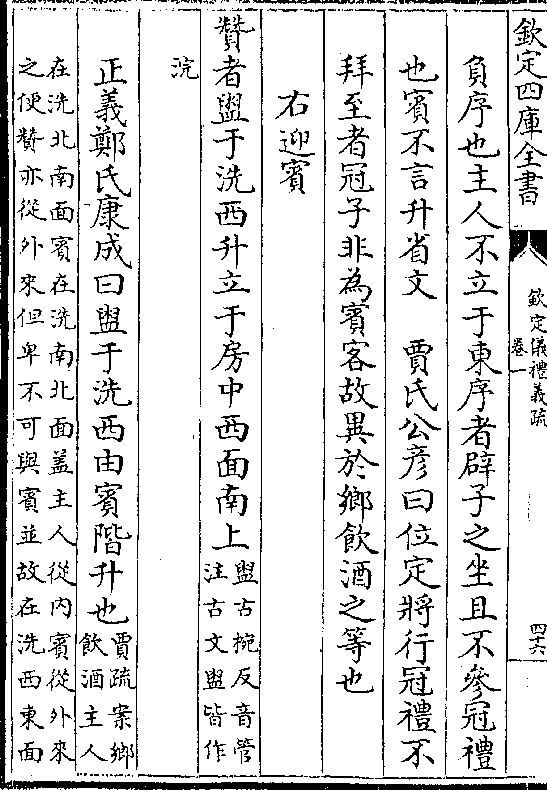 欽定四庫全書
欽定儀禮義疏
卷一
四十六
負序也主人不立于東序者辟子之坐且不參冠禮
也賓不言升省文　賈氏公彦曰位定將行冠禮不
拜至者冠子非為賓客故異於鄉飲酒之等也
右迎賓
贊者盥于洗西升立于房中西面南上
盥古椀反音管
注古文盥皆作
浣
正義鄭氏康成曰盥于洗西由賓階升也
賈疏案鄉
飲酒主人
在洗北南面賓在洗南北面盖主人從内賓從外來
之便贊亦從外來但卑不可與賓並故在洗西東面